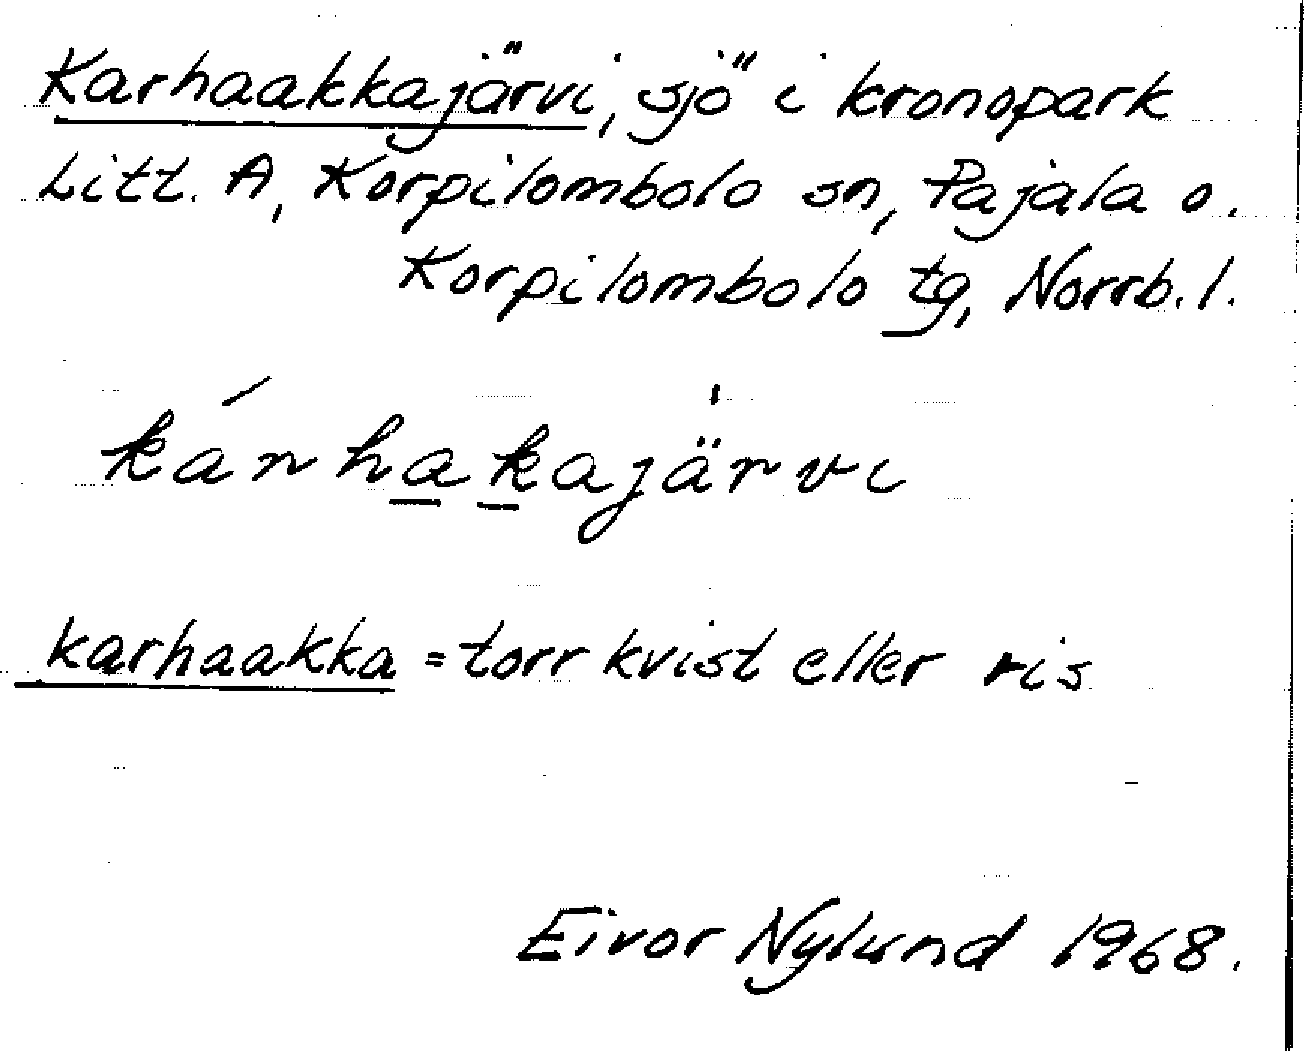 Karhaakkajärvi, sjö i kronopark
Litt. A, Korpilombolo sn, Pajala o.
Korpilombolo tg, Norrb. l.
kárhakajärvi
karhaakka = torr kvist eller ris
Eivor Nylund 1968.